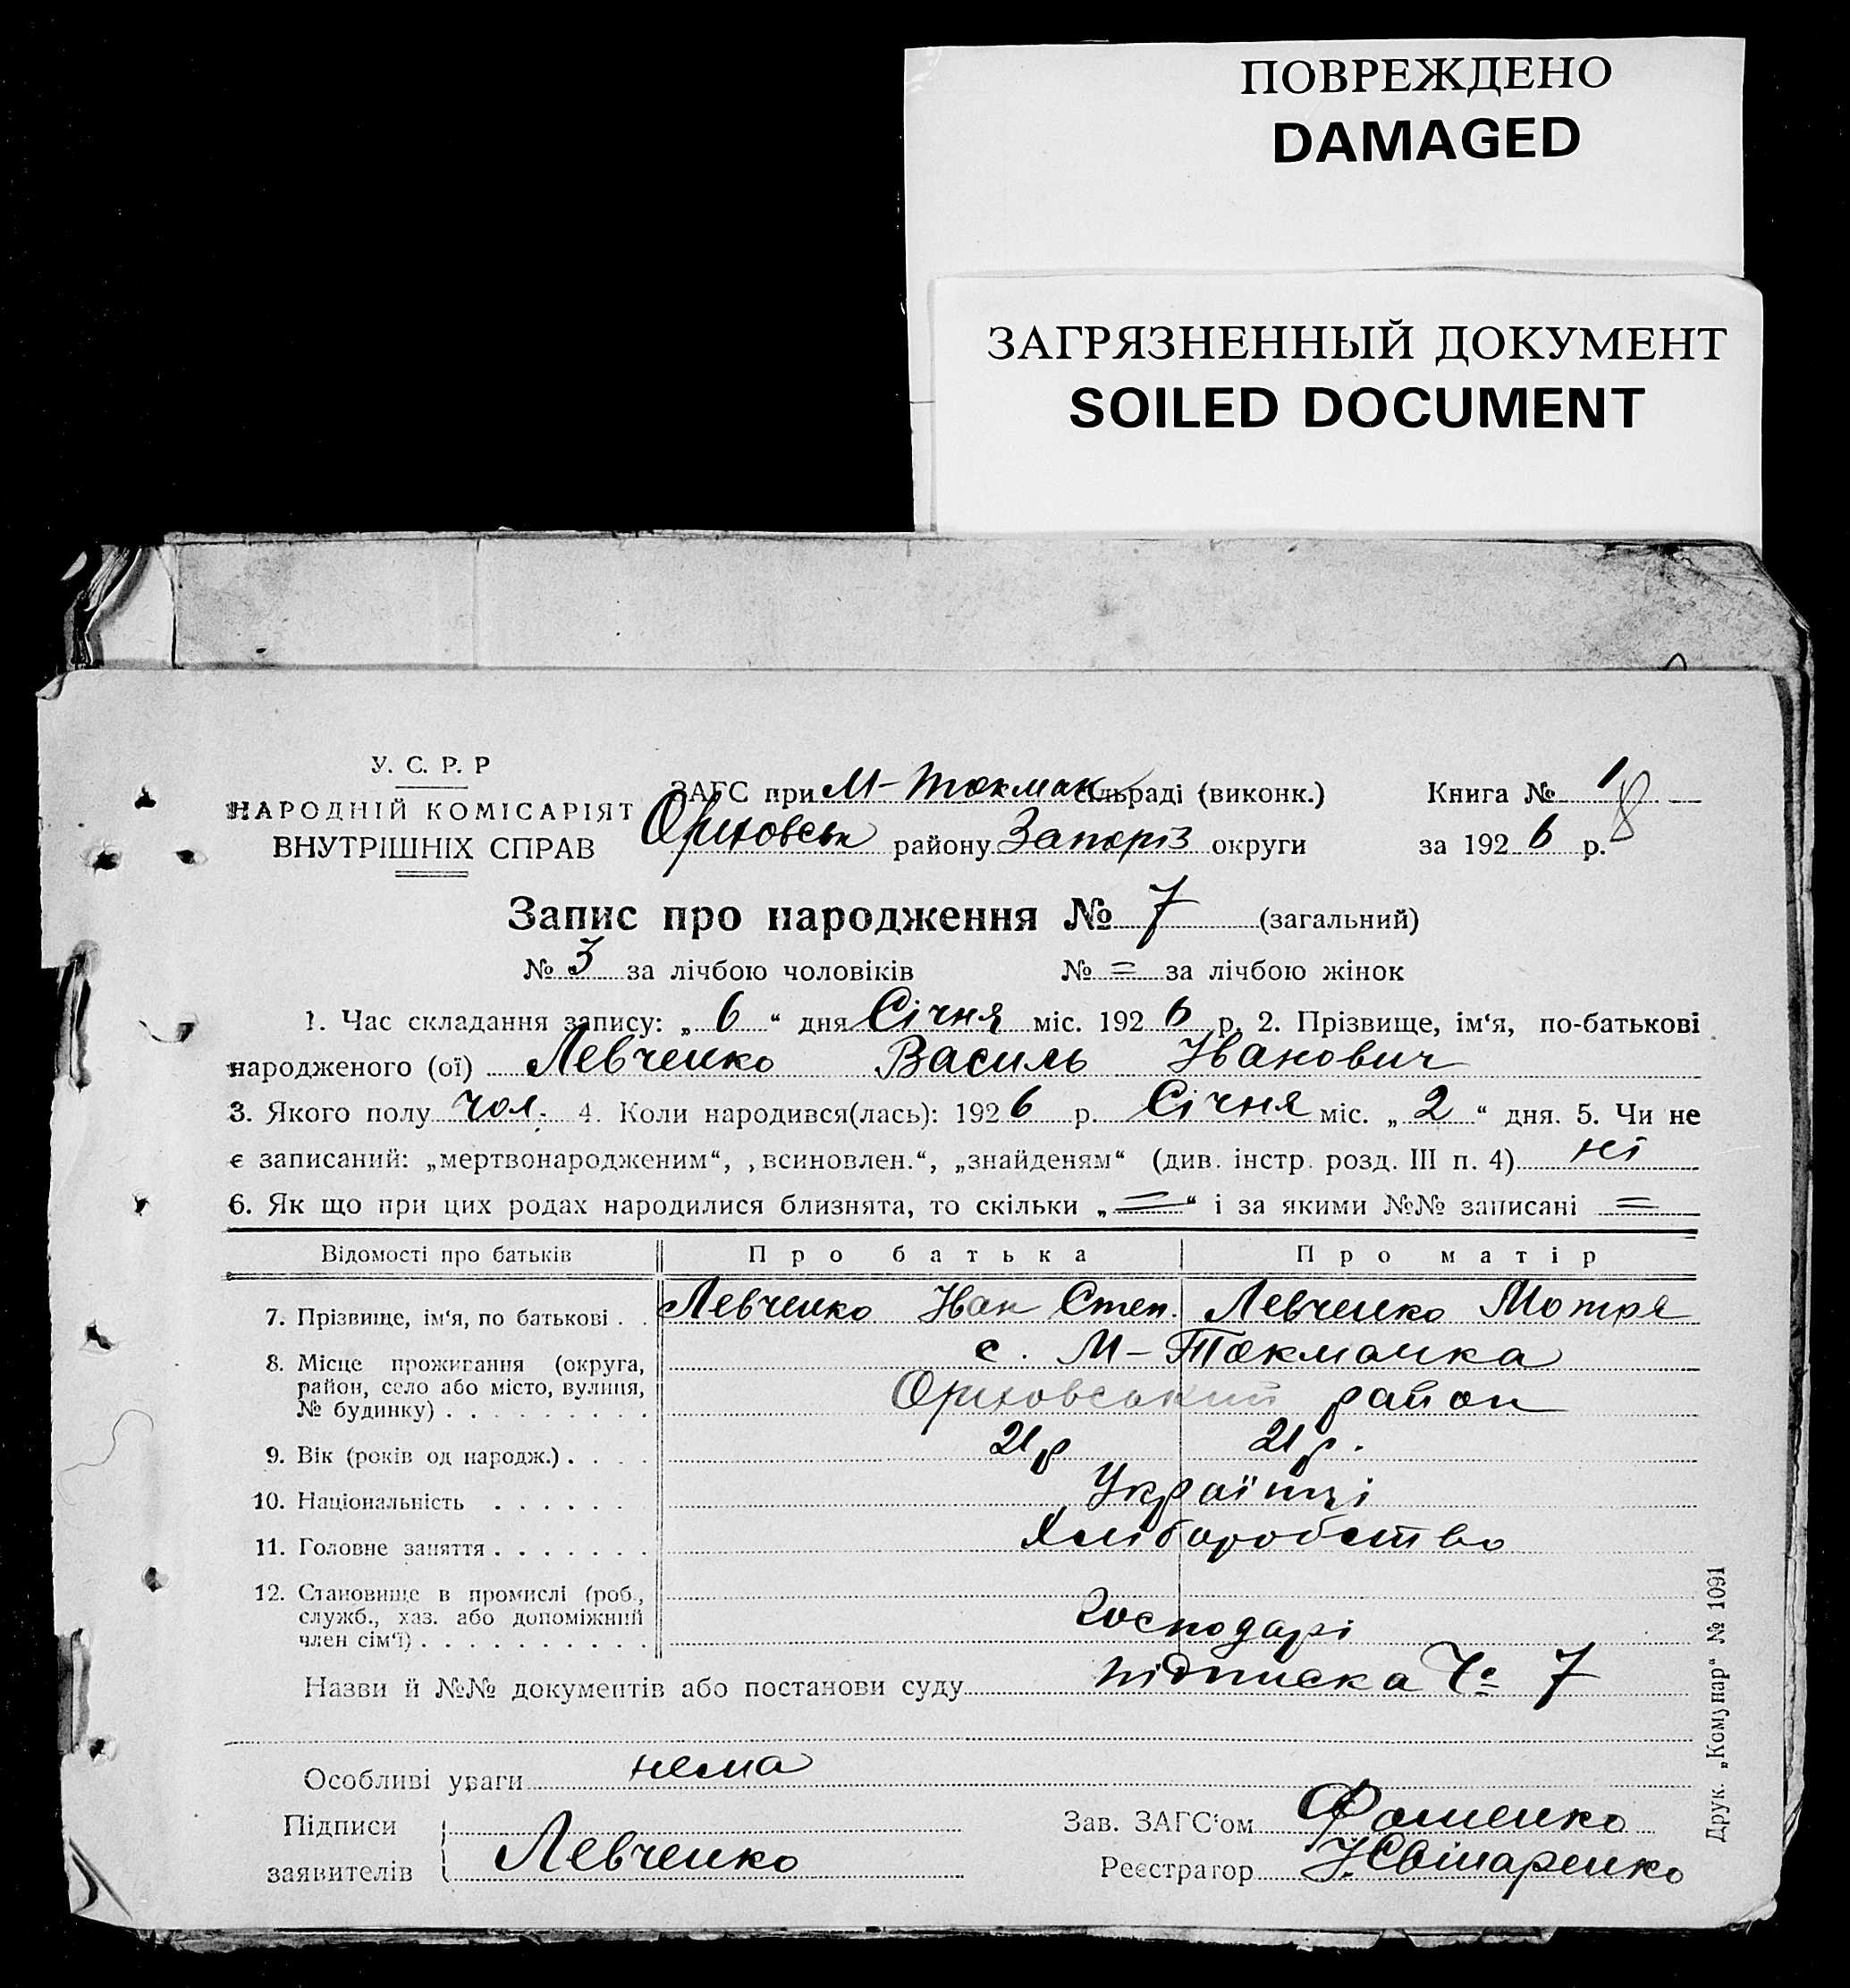 ПОВРЕЖДЕНО
DAMAGED
ЗАГРЯЗНЕННЫЙ ДОКУМЕНТ
SOILED DOCUMENT
У. С. Р. Р
НАРОДНІЙ КОМІСАРІЯТ
ВНУТРІШНІХ СПРАВ
ЗАГС при М-Токмак сільраді (виконк.) Книга № 1
Оріховськ району Запоріз округи за 1926 р. 8
Запис про народження № 7 (загальний)
№ 3 за лічбою чоловіків № = за лічбою жінок
1. Час складання запису: „6“ дня Січня міс. 1926 р. 2. Прізвище, ім‘я, по-батькові
народженого (ої) Левченко Василь Іванович
3. Якого полу чол. 4. Коли народився(лась): 1926 р. Січня міс. „2“ дня. 5. Чи не
є записаний: „мертвонародженим“, „всиновлен.“, „знайденям“ (див. інстр. розд. III п. 4) ні
6. Як що при цих родах народилися близнята, то скільки „=“ і за якими №№ записані =
Відомості про батьків Про батька Про матір
7. Прізвище, ім‘я, по батькові . . Левченко Іван Степ. Левченко Мотря
8. Місце проживання (округа, с. М-Токмачка
район, село або місто, вулиця, Оріховський район
№ будинку) . . . . . . . . .
9. Вік (років од народж.) . . . . 21 р 21 р.
10. Національність . . . . . . Українці
11. Головне заняття . . . . . . . Хліборобство
12. Становище в промислі (роб.,
служб., хаз. або допоміжний Господарі
член сім‘ї) . . . . . . . . . .
Назви й №№ документів або постанови суду підписка № 7
Особливі уваги нема
Підписи Зав. ЗАГС‘ом Фоменко
заявителів Левченко Реєстратор
Друк. „Комунар“ № 1091